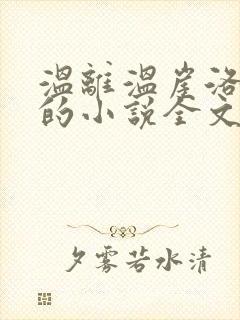 温離温崖洛
的小说全文
夕雾若水清